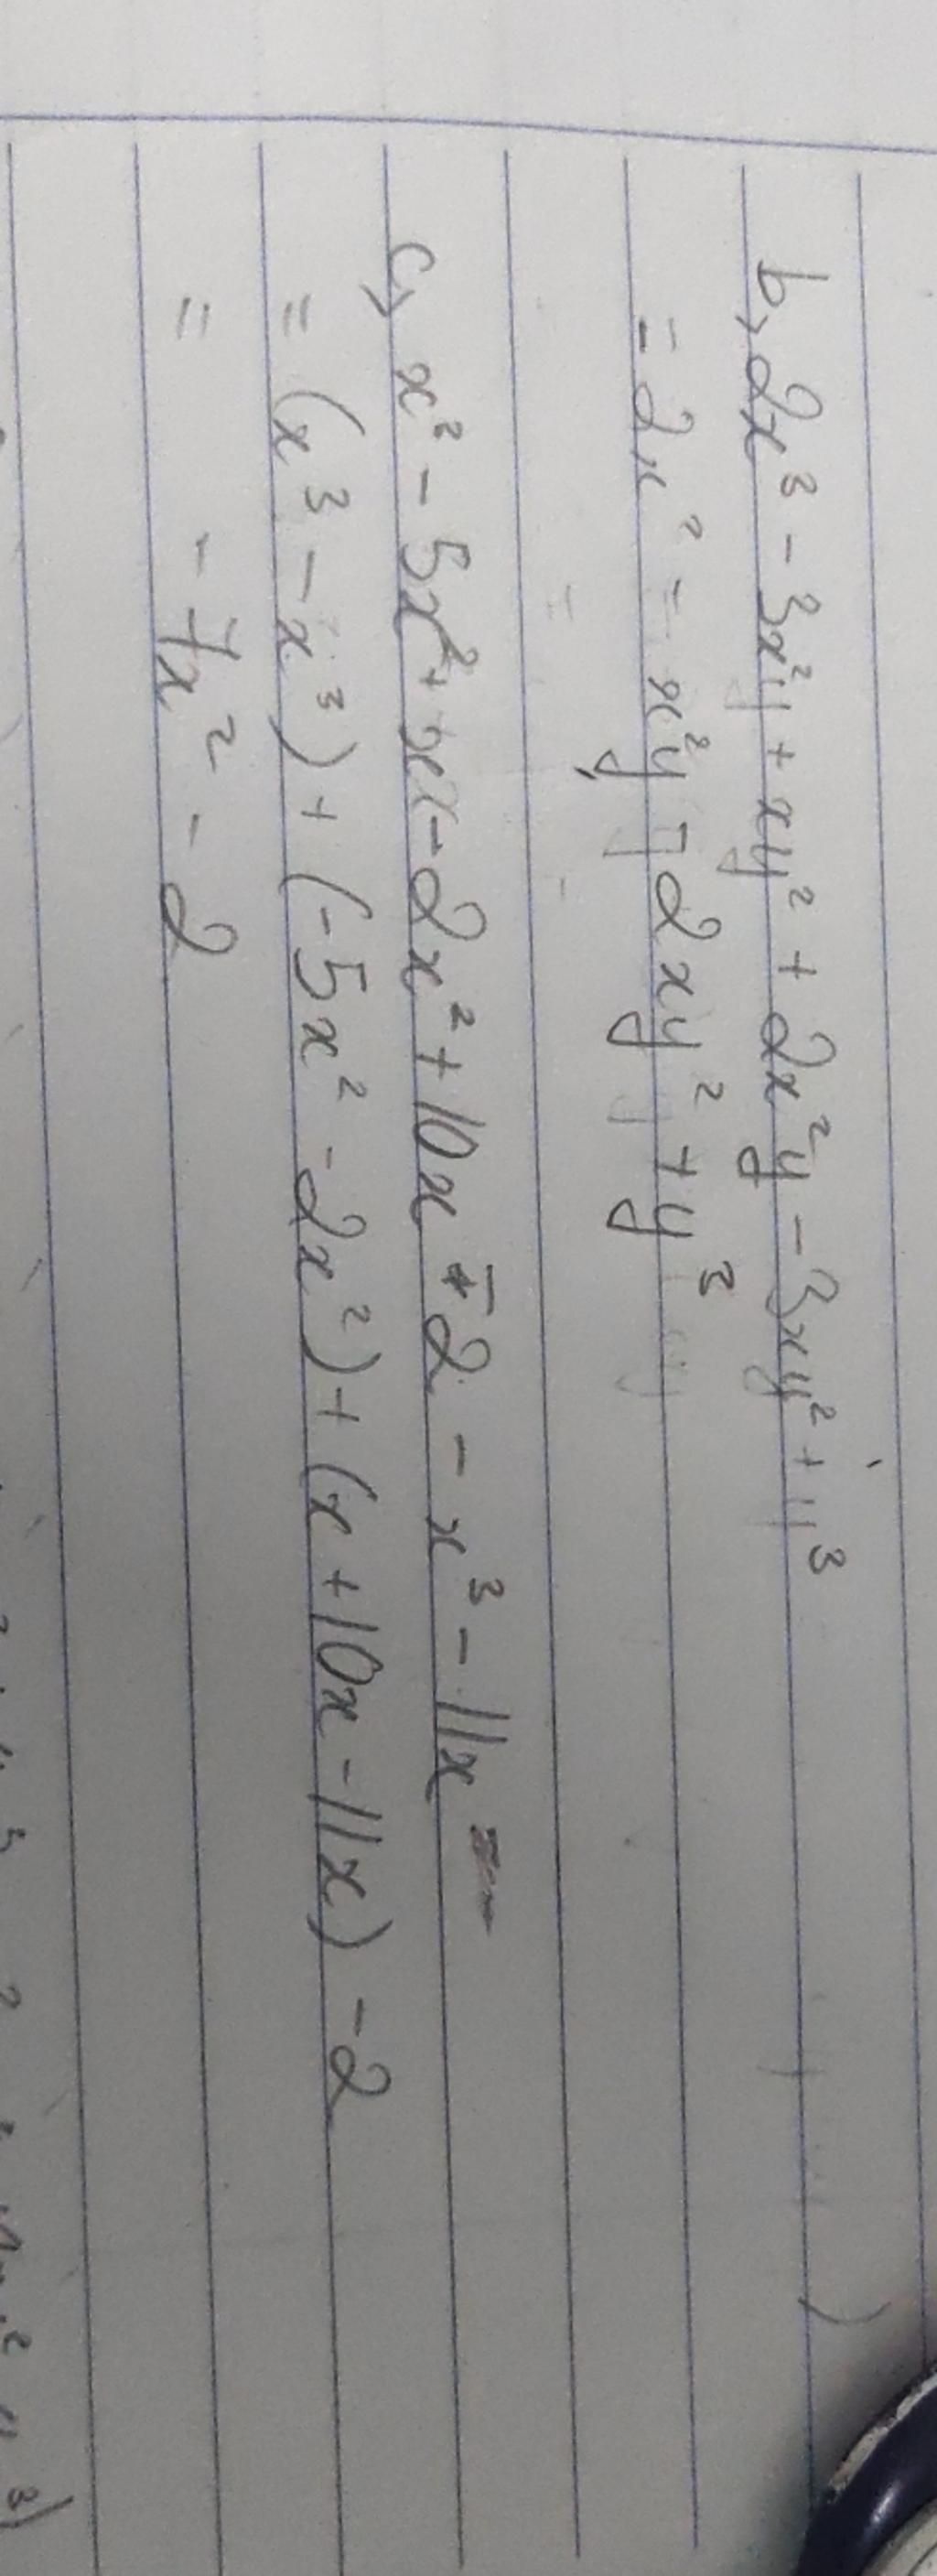 b, 2x³ - 3x²y + xy² + 2x²y - 3xy² + y³
= 2x² = x²y - 2xy² + y³
c, x² - 5x² + x - 2x² + 10x - 2 - x³ - 11x
= (x³ - x³) + (-5x² - 2x²) + (x + 10x - 11x) - 2
= - 7x² - 2